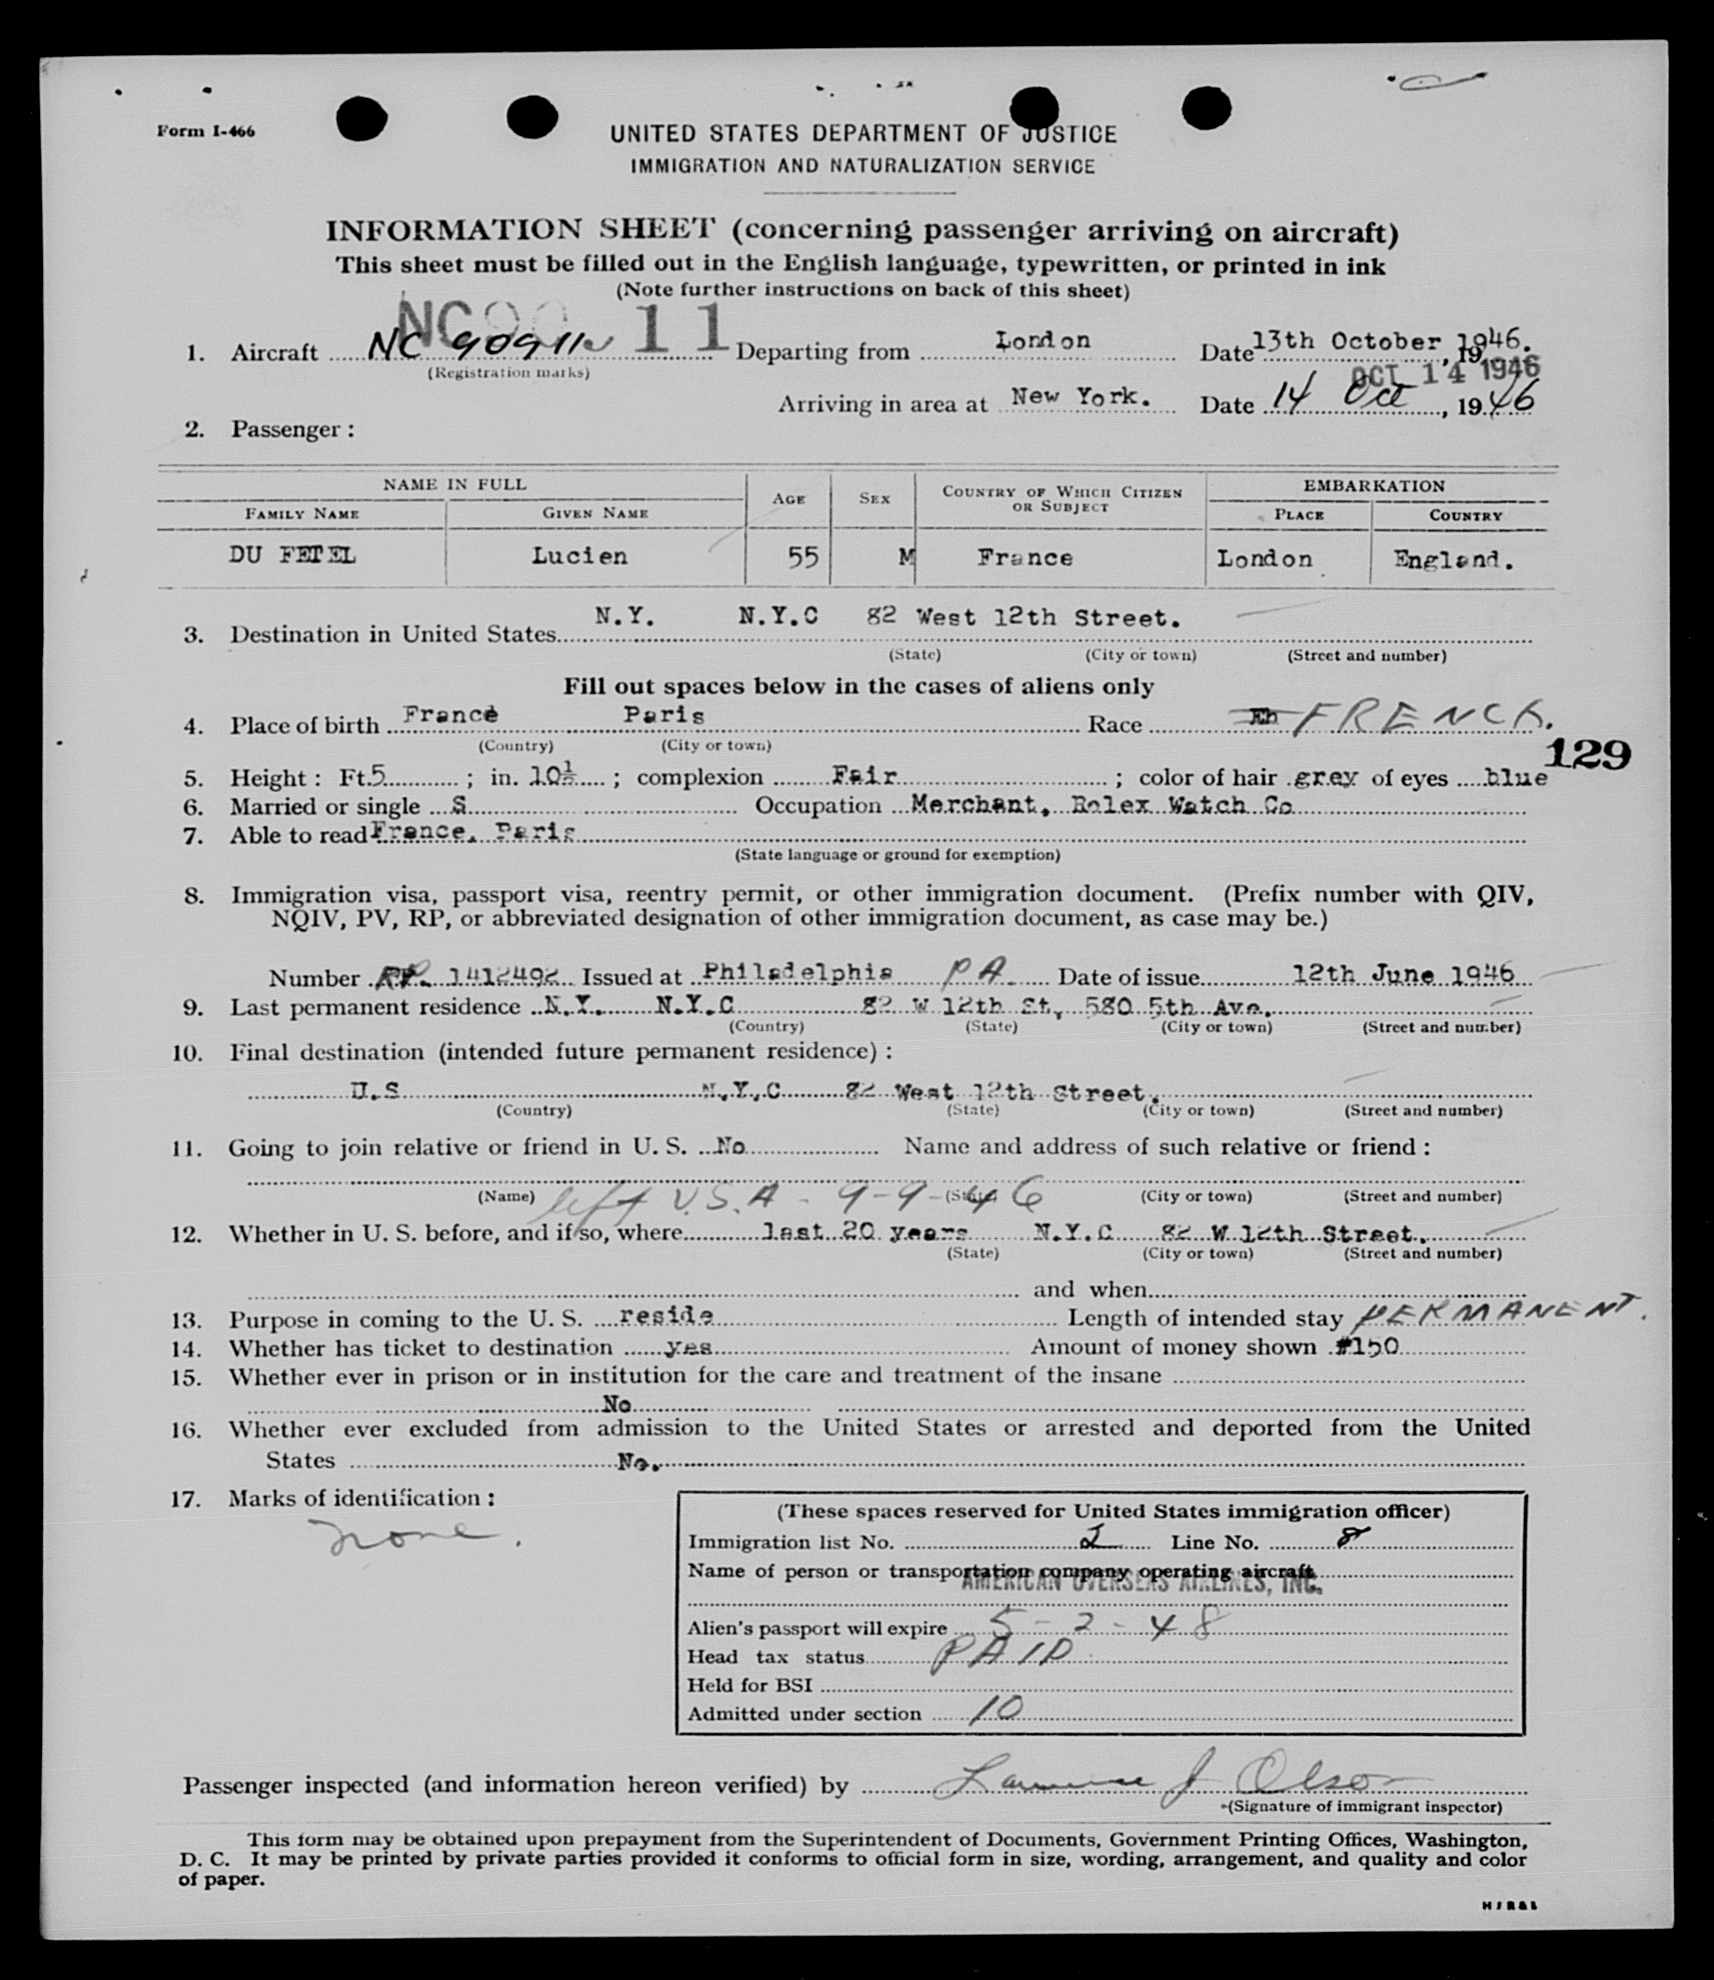 Form I-466
UNITED STATES DEPARTMENT OF JUSTICE
IMMIGRATION AND NATURALIZATION SERVICE
INFORMATION SHEET (concerning passenger arriving on aircraft)
This sheet must be filled out in the English language, typewritten, or printed in ink
(Note further instructions on back of this sheet)
NC90 11
1. Aircraft NC 90911 Departing from London Date 13th October 1946.
(Registration marks)
OCT 14 1946
Arriving in area at New York. Date 14 Oct, 1946
2. Passenger:
NAME IN FULL AGE SEX COUNTRY OF WHICH CITIZEN OR SUBJECT EMBARKATION
FAMILY NAME GIVEN NAME PLACE COUNTRY
DU FETEL Lucien 55 M France London England.
3. Destination in United States N.Y. N.Y.C 82 West 12th Street.
(State) (City or town) (Street and number)
Fill out spaces below in the cases of aliens only
4. Place of birth France Paris Race FRENCH.
(Country) (City or town)
129
5. Height: Ft. 5; in. 10½; complexion Fair; color of hair grey of eyes blue
6. Married or single S Occupation Merchant, Rolex Watch Co
7. Able to read France, Paris
(State language or ground for exemption)
8. Immigration visa, passport visa, reentry permit, or other immigration document. (Prefix number with QIV,
NQIV, PV, RP, or abbreviated designation of other immigration document, as case may be.)
Number RP. 1412492 Issued at Philadelphia PA. Date of issue 12th June 1946
9. Last permanent residence N.Y. N.Y.C 82 W 12th St, 580 5th Ave.
(Country) (State) (City or town) (Street and number)
10. Final destination (intended future permanent residence):
U.S N.Y.C 82 West 12th Street.
(Country) (State) (City or town) (Street and number)
11. Going to join relative or friend in U. S. No Name and address of such relative or friend:
(Name) (State) (City or town) (Street and number)
left U.S.A - 9-9-46
12. Whether in U. S. before, and if so, where last 20 years N.Y.C 82 W 12th Street.
(State) (City or town) (Street and number)
and when
13. Purpose in coming to the U. S. reside Length of intended stay PERMANENT.
14. Whether has ticket to destination yes Amount of money shown $150
15. Whether ever in prison or in institution for the care and treatment of the insane
No
16. Whether ever excluded from admission to the United States or arrested and deported from the United
States No.
17. Marks of identification:
none.
(These spaces reserved for United States immigration officer)
Immigration list No. 2 Line No. 8
Name of person or transportation company operating aircraft
AMERICAN OVERSEAS AIRLINES, INC.
Alien's passport will expire 5-2-48
Head tax status PAID
Held for BSI
Admitted under section 10
Passenger inspected (and information hereon verified) by Lawrence J Olson
(Signature of immigrant inspector)
This form may be obtained upon prepayment from the Superintendent of Documents, Government Printing Offices, Washington,
D. C. It may be printed by private parties provided it conforms to official form in size, wording, arrangement, and quality and color
of paper.